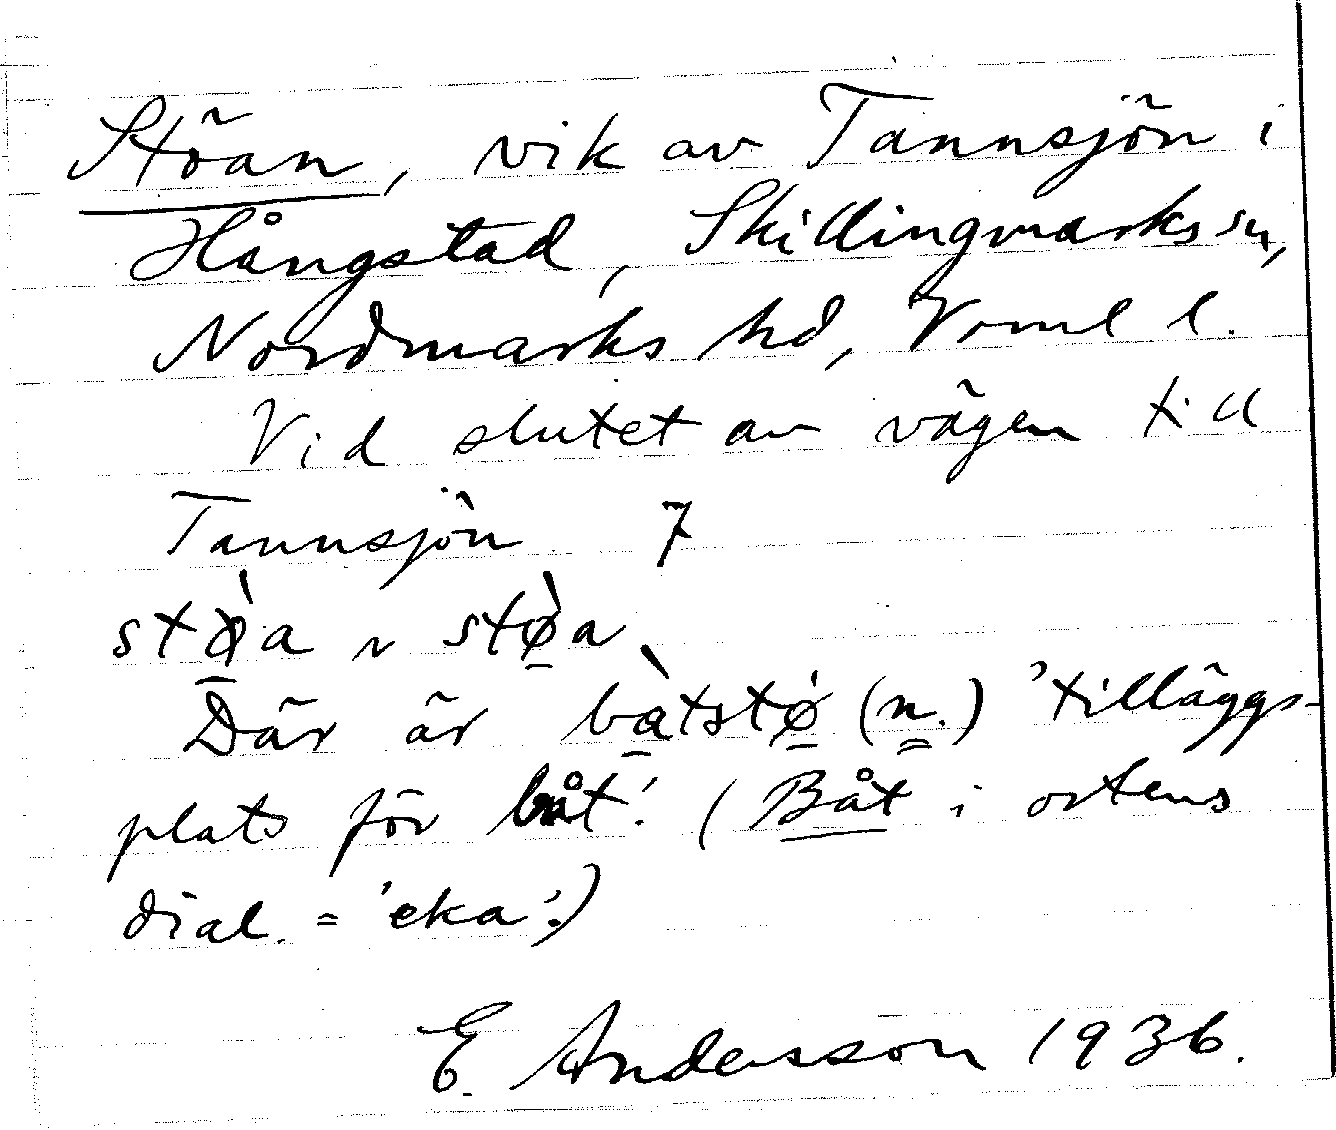 Stöan, vik av Tannsjön i
Hångstad, Skillingmarks sn,
Nordmarks hd, Värml l.
Vid slutet av vägen till
Tannsjön 7
stø̀a ~ stø̀a
Där är bàtstø (n.) 'tilläggs-
plats för båt'. (Båt i ortens
dial. = 'eka'.)
E. Andersson 1936.